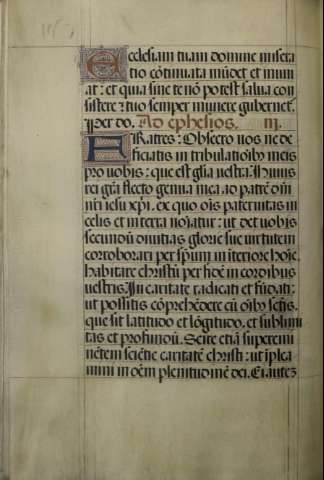 Ecclesiam tuam domine misera
tio cōtinuata mūdet et muni
at : et quia sine te nō potest salua con
sistere : tuo semper munere gubernet͛.
Per do. Ad ephesios. III.
FRatres : Obsecro uos ne de
ficiatis in tribulatiōibꝰ meis
pro uobis : que est gl̄ia uestra. Huius
rei gr̄a flecto genua mea. ad patrē dn̄i
nr̄i iesu xp̄i. ex quo oīs paternitas in
celis et in terra noīatur : ut det uobis
secundū diuitias glorie sue uirtutem
corroborari per sp̄um in interiore hoīe.
habitare christū per fidē in cordibus
uestris. In caritate radicati et fūdati :
ut possitis cōprehēdere cū oībꝰ sc̄tis.
que sit latitudo et lōgitudo. et sublimi
tas et profundū. Scire etiā superemi
nētem sciētie caritatē christi : ut īplea
mini in oēm plenitudinē dei. Ei autē